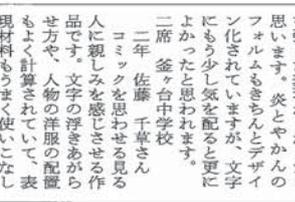 思います。炎とやかんの
フォルムもきちんとデザイ
ン化されていますが、文字
にもう少し気を配ると更に
よかったと思われます。
二席 釜ヶ台中学校
二年 佐藤 千草さん
コミックを思わせる見る
人に親しみを感じさせる作
品です。文字の浮きあがら
せ方や、人物の洋服の配置
もよく計算されていて、表
現材料もうまく使いこなし